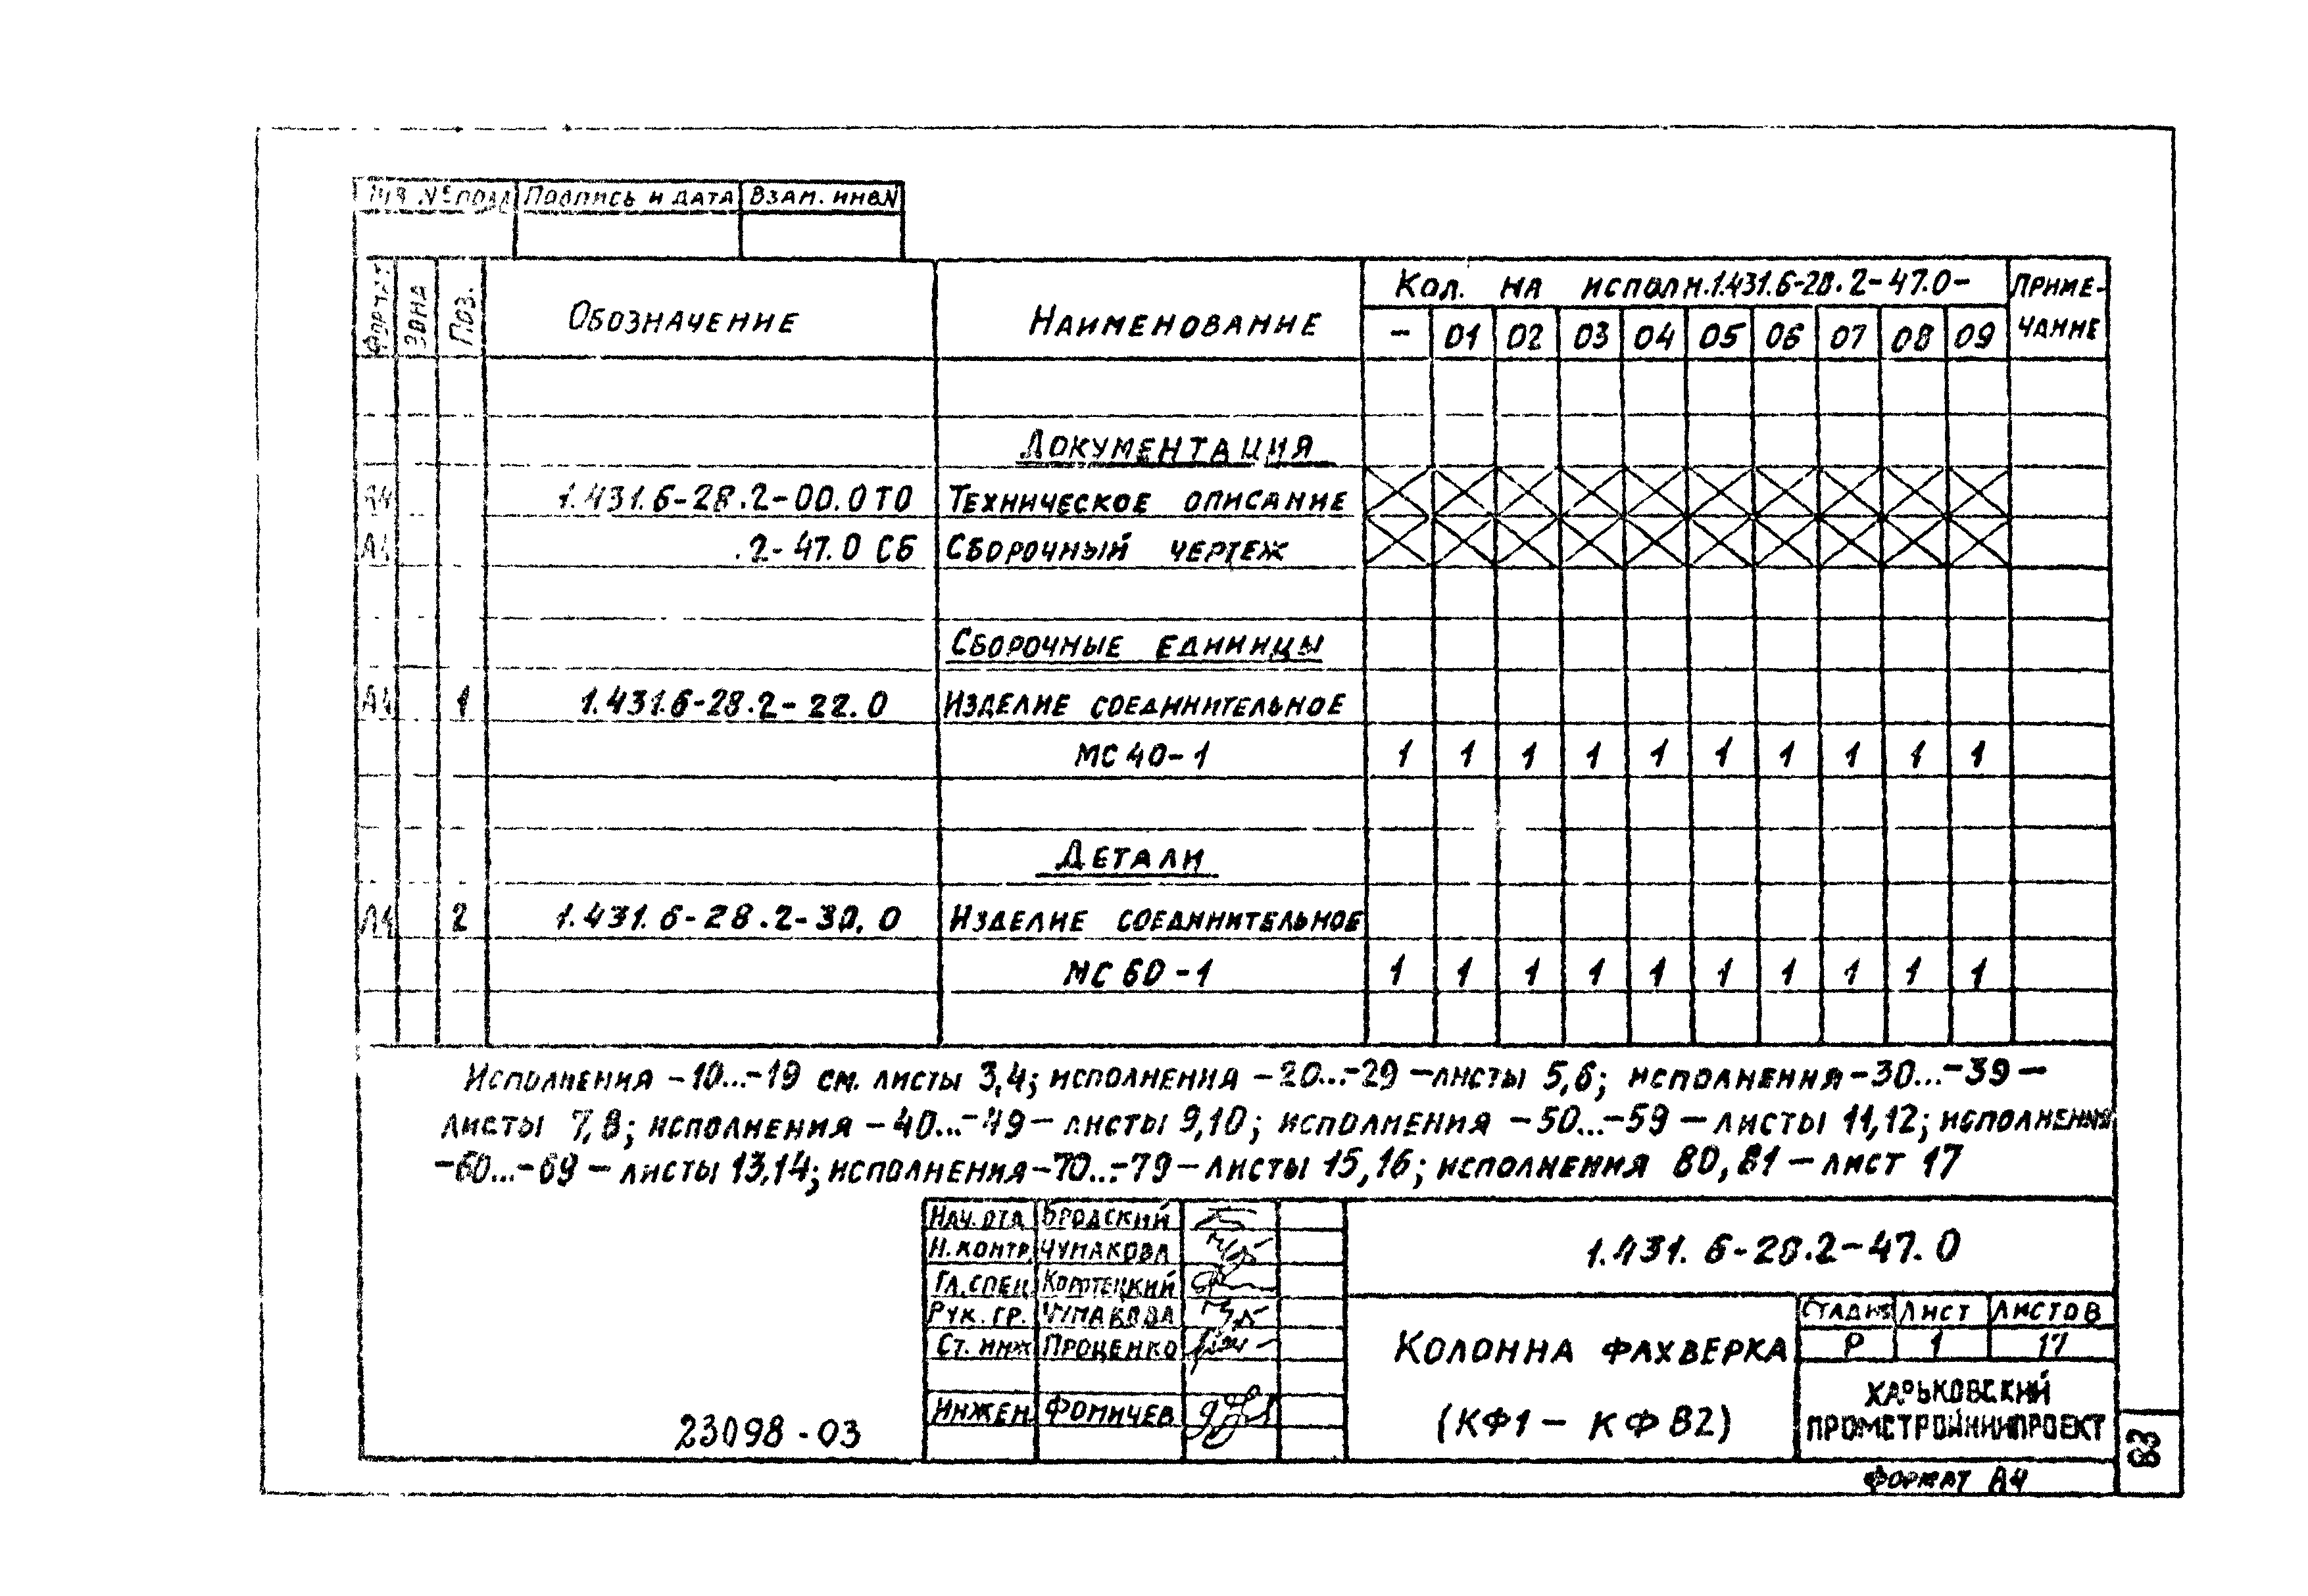 Инв № подл Подпись и дата Взам. инв N
Формат Зона Поз. Обозначение Наименование Кол. на исполн. 1.431.6-28.2-47.0- Приме-
- 01 02 03 04 05 06 07 08 09 чание
Документация
А4 1.431.6-28.2-00.0 ТО Техническое описание
А4 .2-47.0 СБ Сборочный чертеж
Сборочные единицы
А4 1 1.431.6-28.2-22.0 Изделие соединительное
МС 40-1 1 1 1 1 1 1 1 1 1 1
Детали
А4 2 1.431.6-28.2-30.0 Изделие соединительное
МС 60-1 1 1 1 1 1 1 1 1 1 1
Исполнения -10...-19 см. листы 3,4; исполнения -20...-29 -листы 5,6; исполнения -30...-39 -
листы 7,8; исполнения -40...-49 - листы 9,10; исполнения -50...-59 - листы 11,12; исполнения
-60...-69 - листы 13,14; исполнения -70...-79 - листы 15,16; исполнения 80,81 - лист 17
Нач. отд Бродский
Н. контр. Чумакова
Гл. спец
Рук. гр. Чумакова
Ст. инж Проценко
Инжен Фомичев
1.431.6-28.2-47.0
Колонна фахверка
(КФ1 - КФ82)
Стадия Лист Листов
Р 1 17
Харьковский
Промстройниипроект
23098-03
Формат А4
83